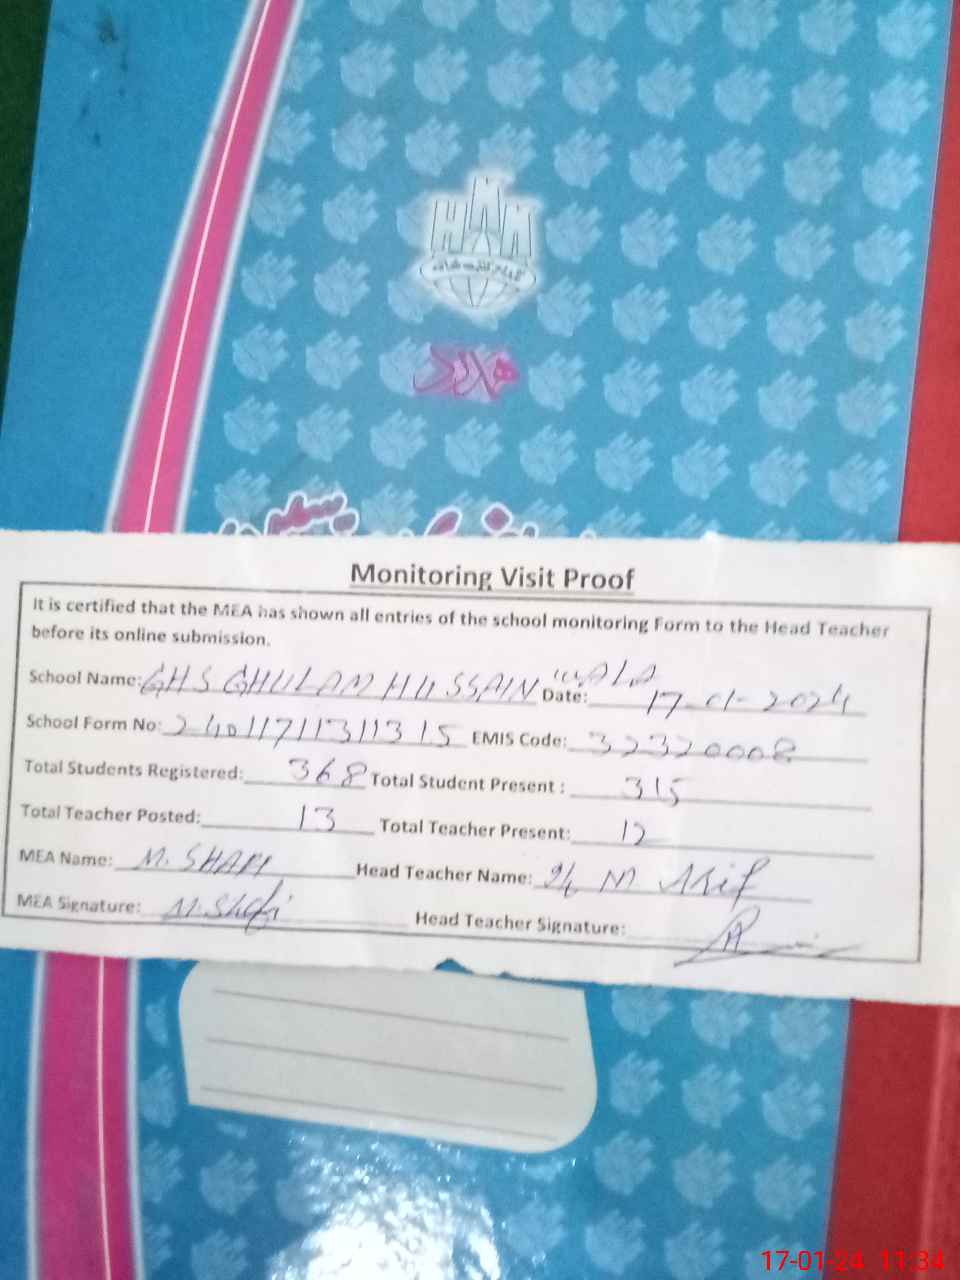 HAN
ھلال
Monitoring Visit Proof
It is certified that the MEA has shown all entries of the school monitoring Form to the Head Teacher
before its online submission.
School Name: GHS GHULAM HUSSAIN WALA Date: 17-01-2024
School Form No: 24011711311315 EMIS Code: 32320008
Total Students Registered: 368 Total Student Present : 315
Total Teacher Posted: 13 Total Teacher Present: 12
MEA Name: M. SHAFI Head Teacher Name: M Asif
MEA Signature: M.Shafi Head Teacher Signature:
17-01-24 11:34